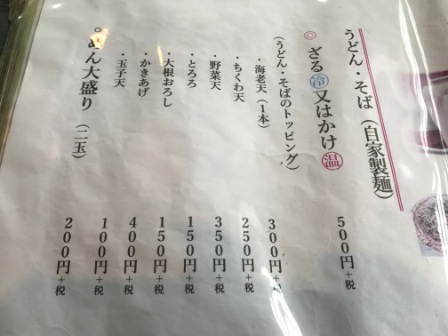 うどん・そば（自家製麺）
◎ざる冷又はかけ温 500円+税
（うどん・そばのトッピング）
・海老天（1本） 300円+税
・ちくわ天 250円+税
・野菜天 350円+税
・とろろ 150円+税
・大根おろし 150円+税
・かきあげ 400円+税
・玉子天 100円+税
◎めん大盛り（二玉） 200円+税